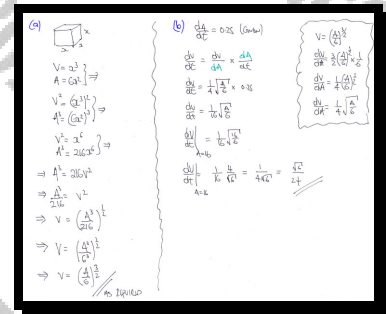 (a)
x
x
x
V = x³
A = 6x² } ⇒
V² = (x³)²
A³ = (6x²)³ } ⇒
V² = x⁶
A³ = 216x⁶ } ⇒
⇒ A³ = 216V²
⇒ A³/216 = V²
⇒ V = (A³/216)^½
⇒ V = (A³/6³)^½
⇒ V = (A/6)^(3/2)
AS REQUIRED
(b) dA/dt = 0.25 (Given)
dV/dt = dV/dA × dA/dt
dV/dt = ¼√(A/6) × 0.25
dV/dt = 1/16 √(A/6)
dV/dt |A=16 = 1/16 √(16/6)
dV/dt |A=16 = 1/16 4/√6 = 1/(4√6) = √6/24
V = (A/6)^(3/2)
dV/dA = 3/2 (A/6)^½ × 1/6
dV/dA = ¼ (A/6)^½
dV/dA = ¼ √(A/6)